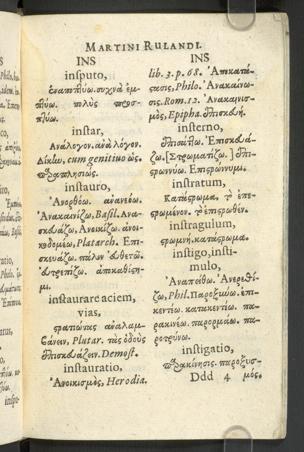 MARTINI RULANDI.
INS
insputo,
ἐναποπτύω. συχνὰ ἐμ-
πτύω. πολὺς προσ-
πτύω.
instar,
Ἀνάλογον. ἀνὰ λόγον.
Δίκην, cum genitiuo ὡς.
παραπλησίως.
instauro,
Ἀνορθόω. ἀνανεόω.
Ἀνακαινίζω, Basil. Ἀνα-
σκευάζω, Ἀνεικίζω. ἀνοι-
κοδομέω, Plutarch. Ἐπι-
σκευάζω. πάλιν
instaurare aciem,
vias,
στρατιώτας ἀναλαμ-
βάνειν, Plutar. τὰς ὁδοὺς
ἐπισκευάζειν. Demost.
instauratio,
Ἀνοικισμὸς, Herodia.
INS
lib. 3. p. 68. Ἀποκατά-
στασις, Philo. Ἀνακαίνω-
σις. Rom. 12. Ἀνακαινισ-
μὸς, Epipha. ἐπισκευή.
insterno,
Ἐπισκευά-
ζω. [Στρωματίζω.] ἐπι-
στρωννύω. Ἐπιστρώνυμι.
instratum,
Κατάστρωμα. τὸ ἐπε-
στρωμένον. τὸ ἐπιστρωθέν.
instragulum,
στρωμνή. κατάστρωμα.
instigo, insti-
mulo,
Ἀναπείθω. Ἀνερεθί-
ζω, Phil. Παροξύνω. ἐπι-
κεντέω. κατακεντέω. πα-
ρακινέω. παρορμάω. πα-
ροτρύνω.
instigatio,
παρακίνησις. παροξυσ-
Ddd 4 μός.